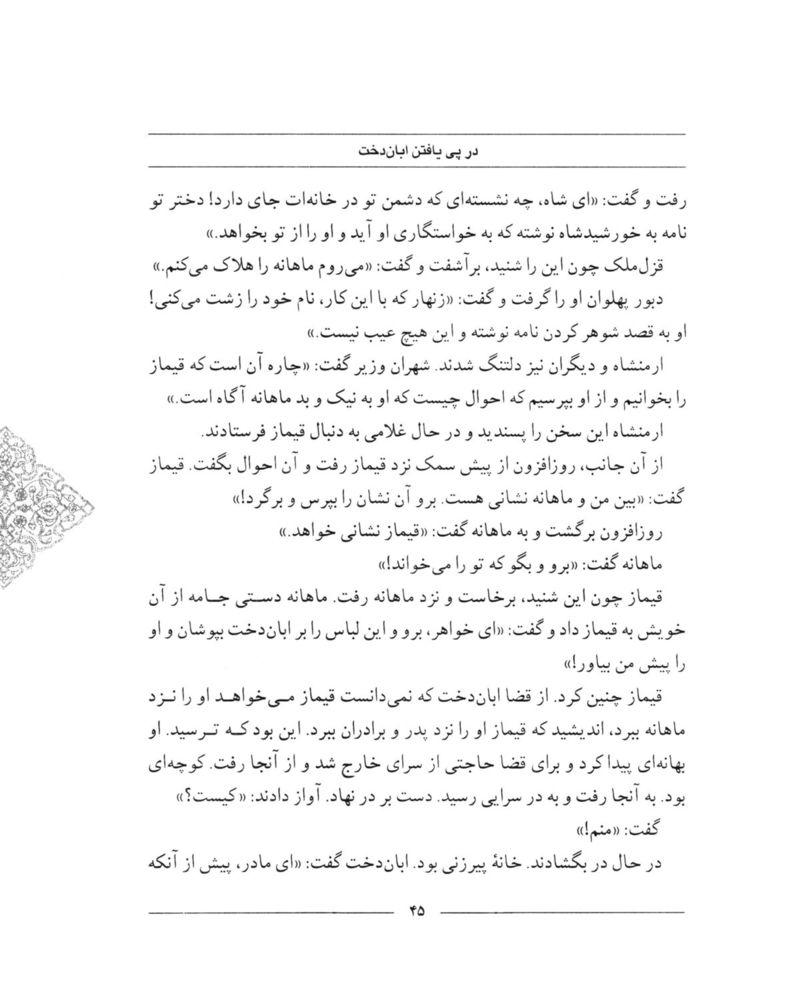 در پی یافتن ابان‌دخت
رفت و گفت: «ای شاه، چه نشسته‌ای که دشمن تو در خانه‌ات جای دارد! دختر تو
نامه به خورشیدشاه نوشته که به خواستگاری او آید و او را از تو بخواهد.»
قزل‌ملک چون این را شنید، برآشفت و گفت: «می‌روم ماهانه را هلاک می‌کنم.»
دبور پهلوان او را گرفت و گفت: «زنهار که با این کار، نام خود را زشت می‌کنی!
او به قصد شوهر کردن نامه نوشته و این هیچ عیب نیست.»
ارمنشاه و دیگران نیز دلتنگ شدند. شهران وزیر گفت: «چاره آن است که قیماز
را بخوانیم و از او بپرسیم که احوال چیست که او به نیک و بد ماهانه آگاه است.»
ارمنشاه این سخن را پسندید و در حال غلامی به دنبال قیماز فرستادند.
از آن جانب، روزافزون از پیش سمک نزد قیماز رفت و آن احوال بگفت. قیماز
گفت: «بین من و ماهانه نشانی هست. برو آن نشان را بپرس و برگرد!»
روزافزون برگشت و به ماهانه گفت: «قیماز نشانی خواهد.»
ماهانه گفت: «برو و بگو که تو را می‌خواند!»
قیماز چون این شنید، برخاست و نزد ماهانه رفت. ماهانه دستی جامه از آن
خویش به قیماز داد و گفت: «ای خواهر، برو و این لباس را بر ابان‌دخت بپوشان و او
را پیش من بیاور!»
قیماز چنین کرد. از قضا ابان‌دخت که نمی‌دانست قیماز می‌خواهد او را نزد
ماهانه ببرد، اندیشید که قیماز او را نزد پدر و برادران ببرد. این بود که ترسید. او
بهانه‌ای پیدا کرد و برای قضا حاجتی از سرای خارج شد و از آنجا رفت. کوچه‌ای
بود. به آنجا رفت و به در سرایی رسید. دست بر در نهاد. آواز دادند: «کیست؟»
گفت: «منم!»
در حال در بگشادند. خانهٔ پیرزنی بود. ابان‌دخت گفت: «ای مادر، پیش از آنکه
۴۵